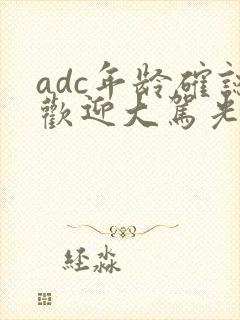 adc年龄確認
歡迎大駕光
经淼